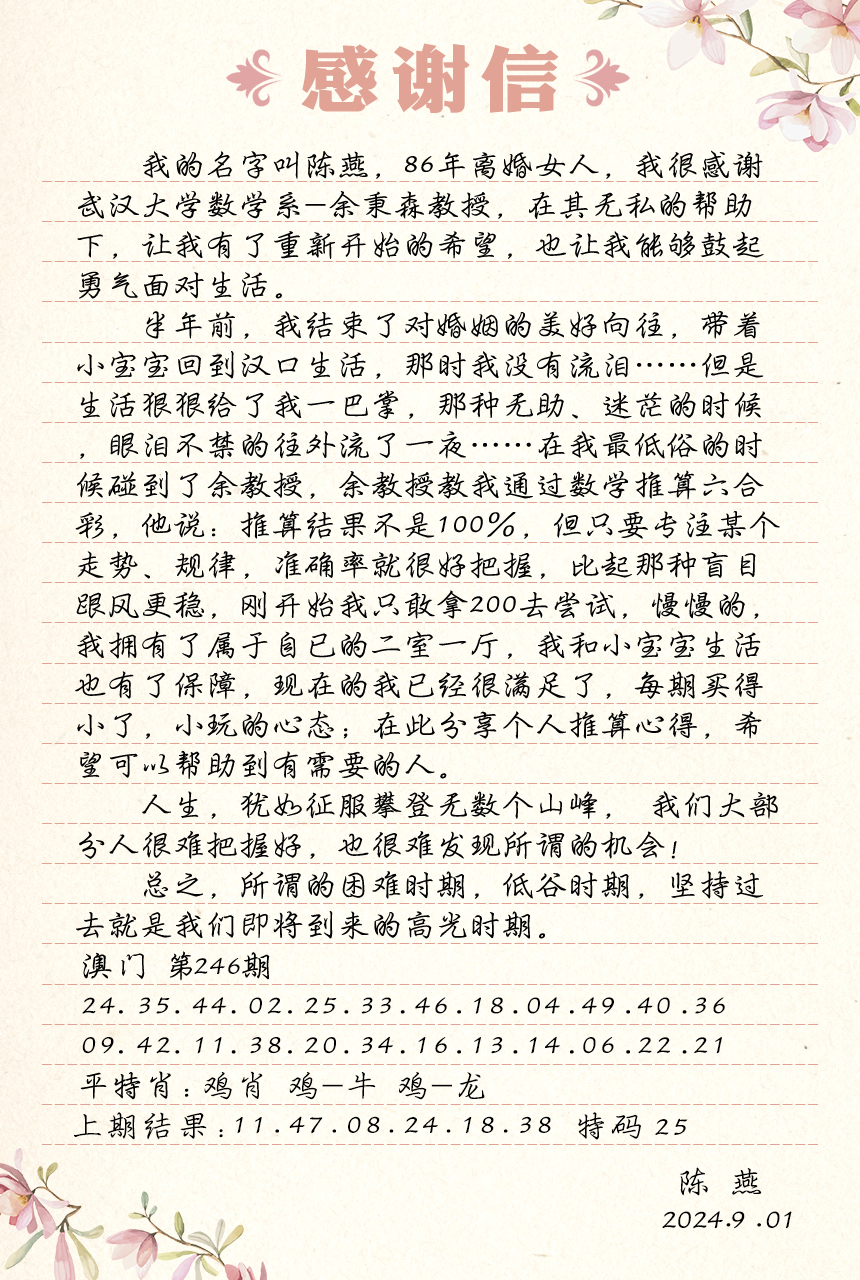 感谢信
我的名字叫陈燕，86年离婚女人，我很感谢
武汉大学数学系—余秉森教授，在其无私的帮助
下，让我有了重新开始的希望，也让我能够鼓起
勇气面对生活。
半年前，我结束了对婚姻的美好向往，带着
小宝宝回到汉口生活，那时我没有流泪……但是
生活狠狠给了我一巴掌，那种无助、迷茫的时候
，眼泪不禁的往外流了一夜……在我最低俗的时
候碰到了余教授，余教授教我通过数学推算六合
彩，他说：推算结果不是100%，但只要专注某个
走势、规律，准确率就很好把握，比起那种盲目
跟风更稳，刚开始我只敢拿200去尝试，慢慢的，
我拥有了属于自已的二室一厅，我和小宝宝生活
也有了保障，现在的我已经很满足了，每期买得
小了，小玩的心态；在此分享个人推算心得，希
望可以帮助到有需要的人。
人生，犹如征服攀登无数个山峰， 我们大部
分人很难把握好，也很难发现所谓的机会！
总之，所谓的困难时期，低谷时期，坚持过
去就是我们即将到来的高光时期。
澳门 第246期
24.35.44.02.25.33.46.18.04.49.40.36
09.42.11.38.20.34.16.13.14.06.22.21
平特肖：鸡肖 鸡—牛 鸡—龙
上期结果：11.47.08.24.18.38 特码 25
陈 燕
2024.9.01